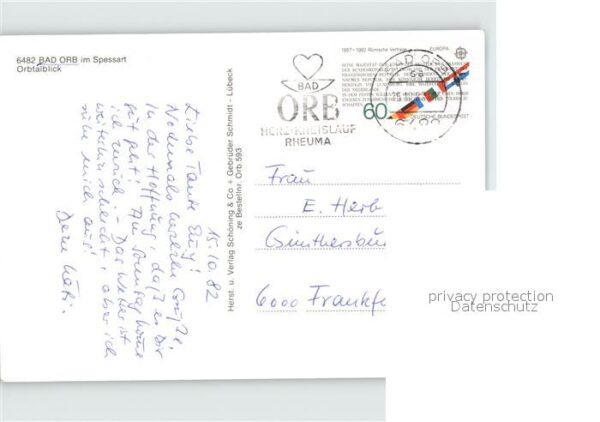 6482 BAD ORB im Spessart
Orbtalblick
15.10.82
Liebe Tante Elly!
Nochmals herzliche Grüße,
In der Hoffnung, daß es Dir
gut geht! Am Sonntag komme
ich zurück. - Das Wetter ist
weiterhin schlecht, aber ich
ruhe mich aus!
Deine Käti.
Herst. u. Verlag Schöning & Co + Gebrüder Schmidt - Lübeck
ze Bestellnr. Orb 593
BAD
ORB
HERZ-KREISLAUF
RHEUMA
1957-1982 Römische Verträge
EUROPA
60
DEUTSCHE BUNDESPOST
BAD ORB
6482
Frau
E. Herb
Günthersbu
6000 Frankf
privacy protection
Datenschutz